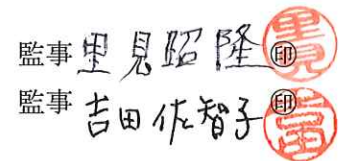 監事 里見昭隆 ㊞
監事 吉田佐智子 ㊞